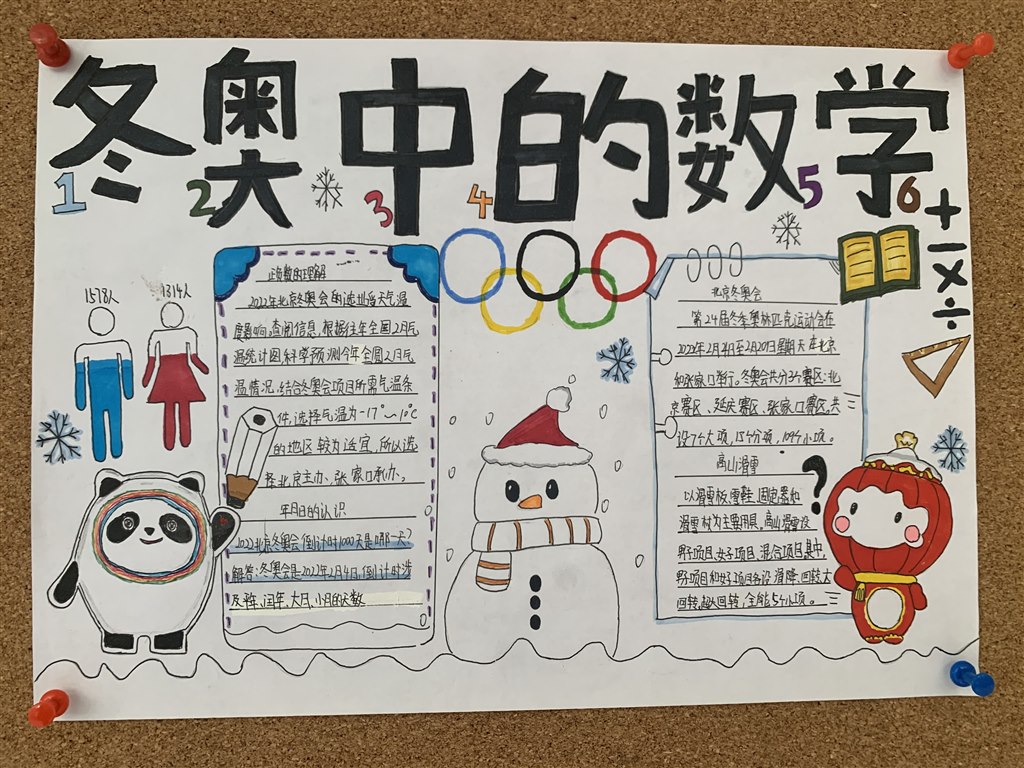 冬奥中的数学
1 2 3 4 5 6
+ - × ÷
1578人 1314人
正负数的理解
2022年北京冬奥会的选址受天气温
度影响,查阅信息,根据往年全国2月气
温统计图科学预测今年全国2月气
温情况,结合冬奥会项目所需气温条
件,选择气温为-17°～-10℃
的地区较为适宜,所以选
择北京主办、张家口承办。
年月日的认识
2022北京冬奥会倒计时1000天是哪一天?
解答:冬奥会是2022年2月4日,倒计时涉
及平年、闰年、大月、小月的天数
北京冬奥会
第24届冬季奥林匹克运动会在
2022年2月4日至2月20日星期天在北京
和张家口举行。冬奥会共分3个赛区:北
京赛区、延庆赛区、张家口赛区。共
设7个大项,15个分项,109个小项。
高山滑雪
以滑雪板、雪鞋、固定器和
滑雪杖为主要用具。高山滑雪设
男子项目、女子项目、混合项目其中,
男子项目和女子项目各设滑降、回转、大
回转、超大回转、全能5个小项。
?